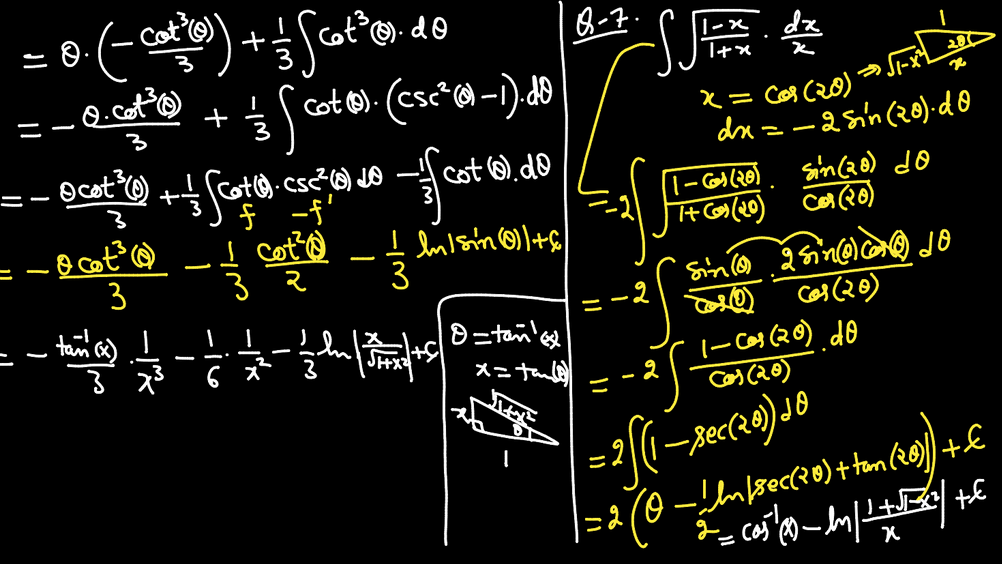 = θ·(−cot³(θ)/3) + 1/3 ∫ cot³(θ)·dθ
= −θ·cot³(θ)/3 + 1/3 ∫ cot(θ)·(csc²(θ) − 1)·dθ
= −θcot³(θ)/3 + 1/3 ∫ cot(θ)·csc²(θ) dθ − 1/3 ∫ cot(θ)·dθ
f −f'
= −θcot³(θ)/3 − 1/3 cot²(θ)/2 − 1/3 ln|sin(θ)| + C
= −tan⁻¹(x)/3 · 1/x³ − 1/6 · 1/x² − 1/3 ln|x/√(1+x²)| + C
θ = tan⁻¹(x)
x = tan(θ)
√(1+x²)
x θ
1
Q-7. ∫ √((1−x)/(1+x)) · dx/x
1
√(1−x²) 2θ
x
x = cos(2θ) ⇒
dx = −2 sin(2θ)·dθ
= −2 ∫ √((1−cos(2θ))/(1+cos(2θ))) · sin(2θ)/cos(2θ) dθ
= −2 ∫ sin(θ)/cos(θ) · 2sin(θ)cos(θ)/cos(2θ) dθ
= −2 ∫ (1−cos(2θ))/cos(2θ) · dθ
= 2 ∫ (1 − sec(2θ)) dθ
= 2 (θ − 1/2 ln|sec(2θ) + tan(2θ)|) + C
= cos⁻¹(x) − ln|(1+√(1−x²))/x| + C